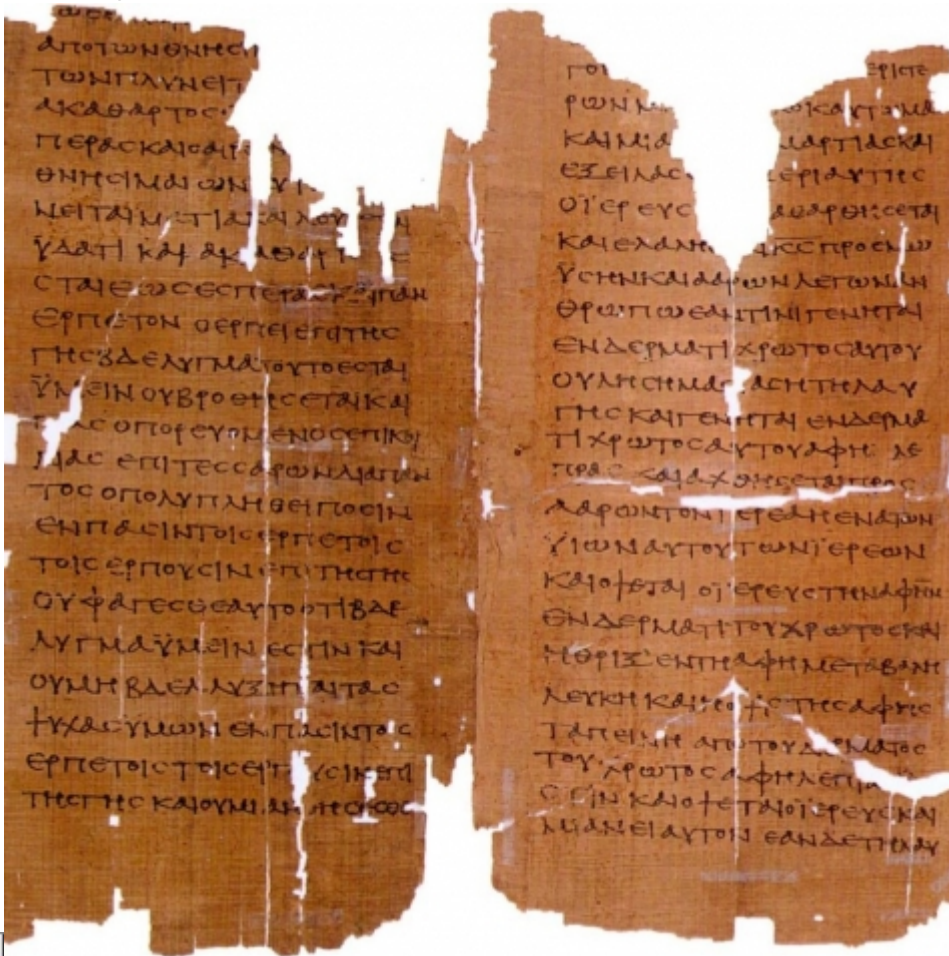 αποτωνθνηϲι
τωνπλυνειτ
ακαθαρτοϲ
περαϲκαιοαιρ
θνηϲιμαιων
νειταιματιακαιλου
ϋδατι και ακαθαρτ
ϲταιεωϲεϲπεραϲκαιπαν
ερπετον οερπειεπιτηϲ
γηϲβδελυγματουτοεϲται
ϋμεινουβρωθηϲεταικαι
παϲοπορευομενοϲεπικοι
λιαϲ επιτεϲϲαρωνδιαπαν
τοϲοπολυπληθειποϲιν
ενπαϲιντοιϲερπετοιϲ
τοιϲερπουϲινεπιτηϲγηϲ
ουφαγεϲθεαυτοοτιβδε
λυγμαϋμεινεϲτινκαι
ουμηβδελυξηταιταϲ
ψυχαϲυμωνενπαϲιντοιϲ
ερπετοιϲτοιϲερπουϲινεπι
τηϲγηϲκαιουμιανθηϲεϲθε
γο εριϲτε
ρων μ ωκαυτωμα
καιμια μαρτιαϲκαι
εξειλαϲ εριαυτηϲ
οϊερευϲ αθαρθηϲεται
καιελαλη κϲπροϲμω
ϋϲηνκαιααρωνλεγωναν
θρωπωεαντινιγενηται
ενδερματιχρωτοϲαυτου
ουληϲημαϲιαϲητηλαυ
γηϲκαιγενηταιενδερμα
τιχρωτοϲαυτουαφη λε
πραϲ καιαχθηϲεταιπροϲ
ααρωντονϊερεαηενατων
ϋιωναυτουτωνϊερεων
καιοψεταιοϊερευϲτηναφην
ενδερματιτουχρωτοϲκαι
ηθριξεντηαφημεταβαλη
λευκηκαιηοψιϲτηϲαφηϲ
ταπεινηαποτουδερματοϲ
τουχρωτοϲαφηλεπρα
ϲτινκαιοψεταιοϊερευϲκαι
μιανειαυτονεανδετηλαυ